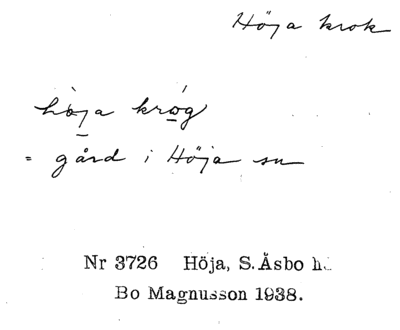 Höja krok
hö̀ja kró̱g
= gård i Höja sn
Nr 3726 Höja, S. Åsbo h.
Bo Magnusson 1938.